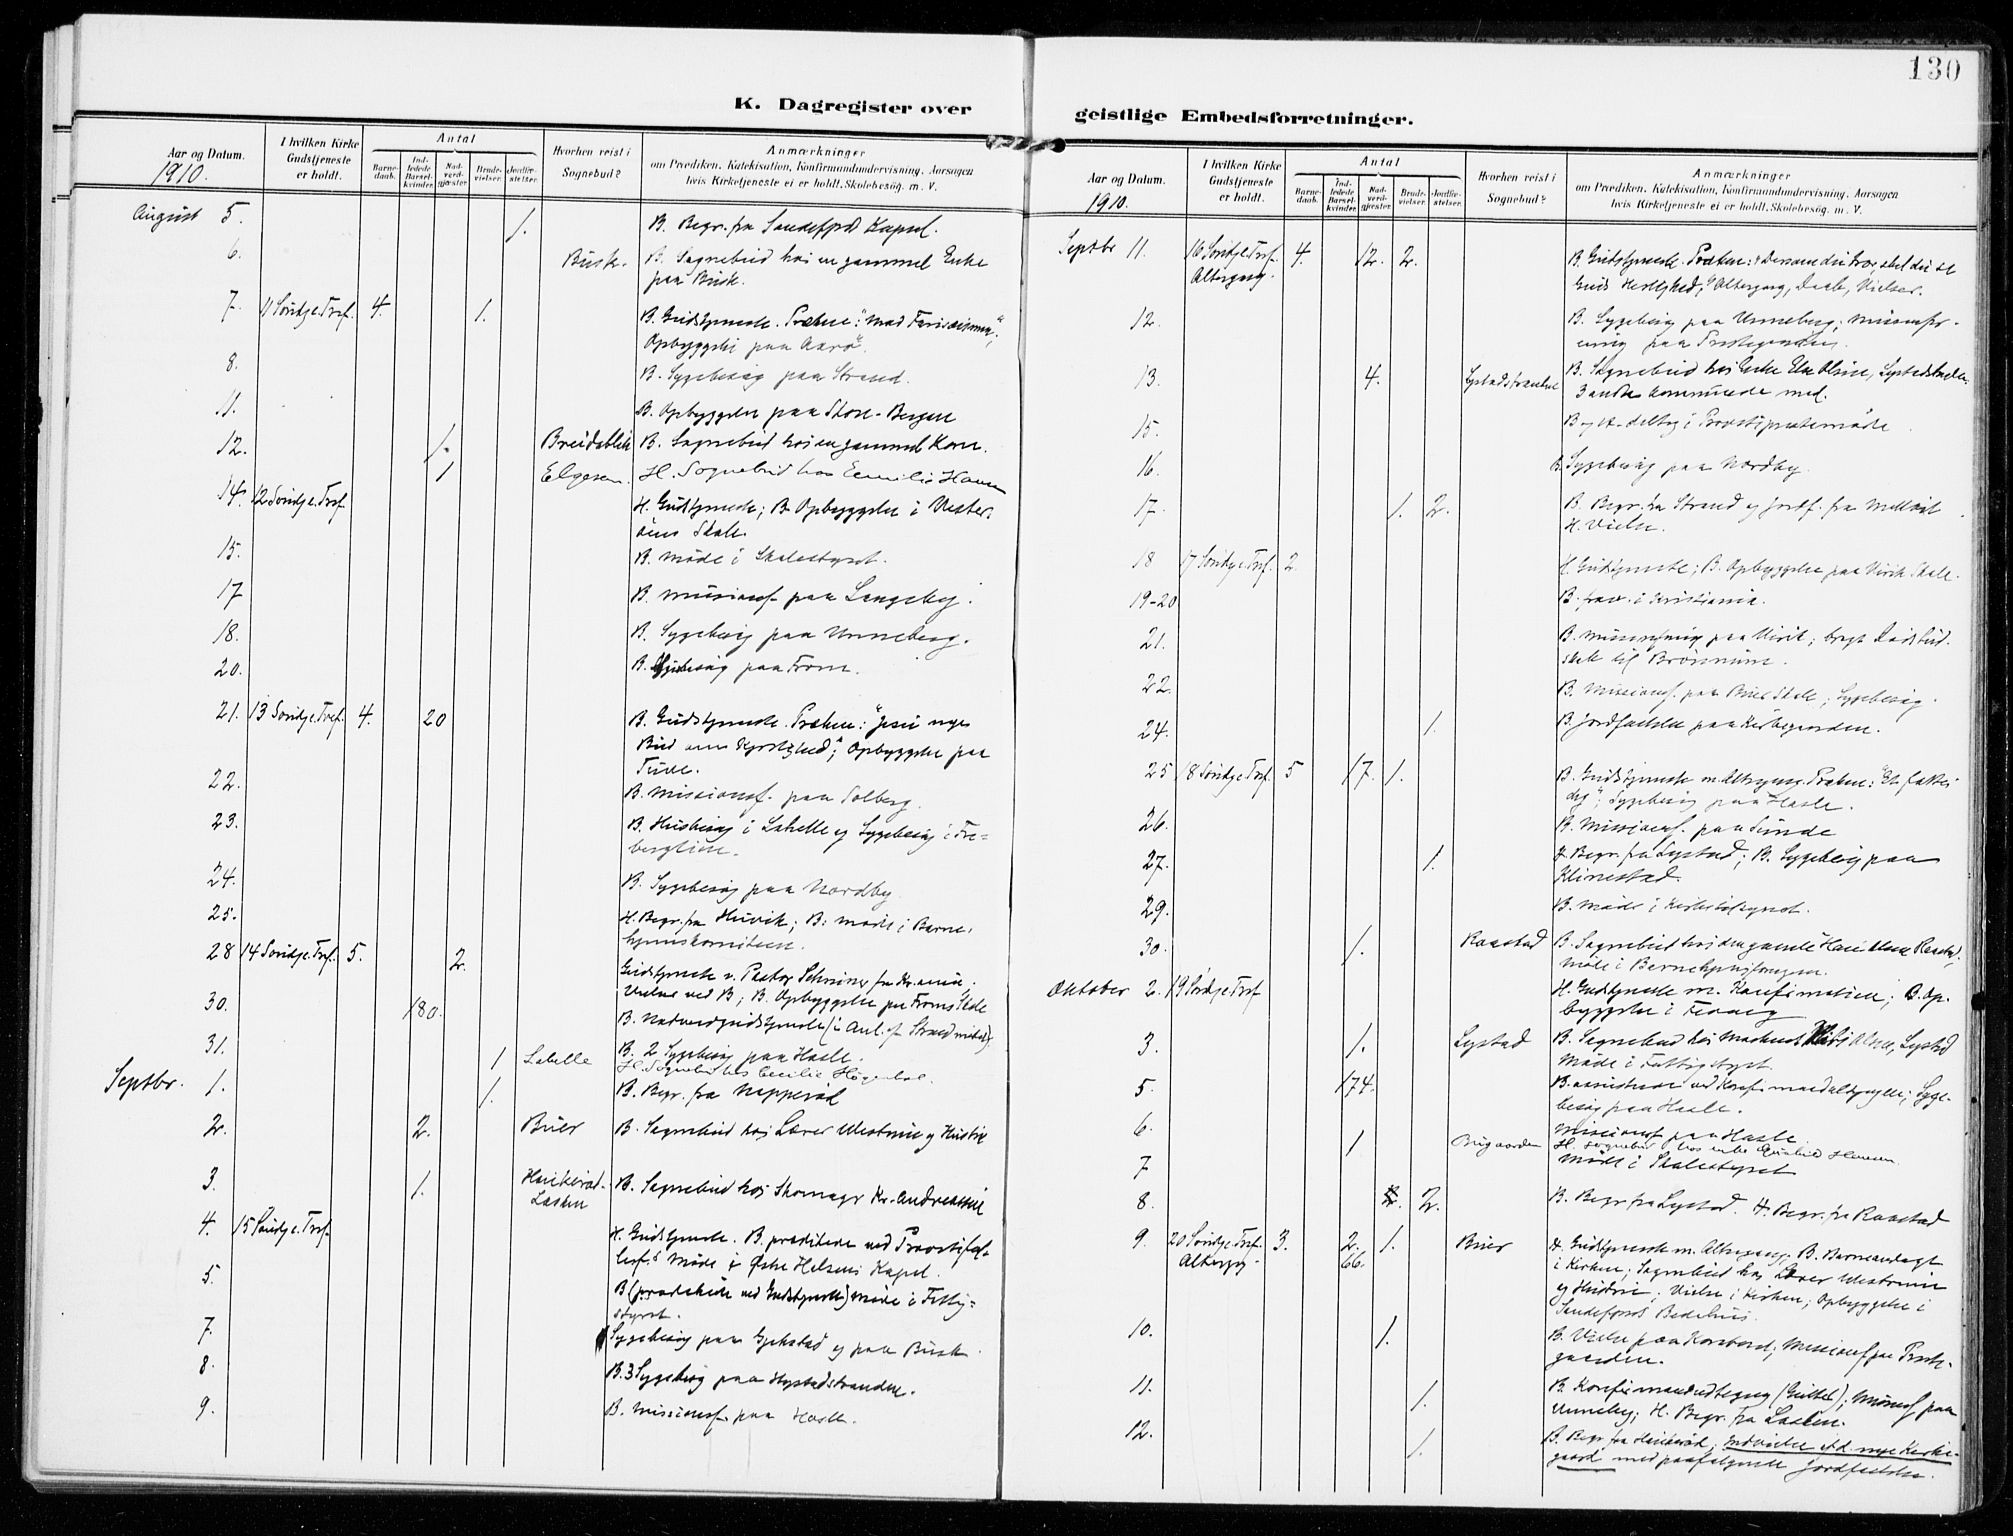 130
K. Dagregister over
geistlige Embedsforretninger.
Aar og Datum.
1910.
I hvilken Kirke
Gudstjeneste
er holdt.
Antal
Barne-
daab.
Ind-
ledede
Barsel-
kvinder.
Nad-
verd-
gjæster.
Brude-
vielser.
Jordfæ-
stelser.
Hvorhen reist i
Sognebud?
Anmærkninger
om Prædiken, Katekisation, Konfirmandundervisning, Aarsagen
hvis Kirketjeneste ei er holdt, Skolebesög, m. V.
August 5. 1. B. Begr. fra Sandefjord Kapel.
6. Busk. B. Sognebud hos en gammel Enke
paa Busk.
7. 11 Söndg e. Tref. 4. 1. B. Gudstjeneste. Præken: "mod Fariseismen";
Opbyggelse paa Aarö.
8. B. Sygebesög paa Strand.
11. B. Opbyggelse paa Store-Bergan
12. 1. Breidablik B. Sognebud hos en gammel Kone.
1 Elgesem. H. Sognebud hos Emilie Hansen
14. 12 Söndg e. Tref. H. Gudstjeneste; B. Opbyggelse i Vester-
öens Skole.
15. B. Möde i Skolestyret.
17 B. Missionsf. paa Langeby.
18. B. Sygebesög paa Unneberg.
20. B. Sygebesög paa Fram.
21. 13 Söndg e. Tref. 4. 20 B. Gudstjeneste. Præken: "Jesu nye
Bud om Kjærlighed"; Opbyggelse paa
22. B. Missionsf. paa Solberg.
23. B. Husbesög i Labelle og Sygebesög i
24. B. Sygebesög paa Nordby
25. H. Begr. fra Huvik; B. Möde i Barne-
hjemskomiteen.
28 14 Söndg e. Tref. 5. 2. Gudstjeneste v. Pastor Schreiner fra Kr.ania.
Vielser ved B; B. Opbyggelse paa Framnes Skole
30. 180. B. Nadverdgudstjeneste (i Anl. af Strandmötet).
31. B. 2 Sygebesög paa Hasle.
1 Labelle H. Sognebud hos Cecilie
Septbr. 1. 1. B. Begr. fra Nepperöd
2. 2. Buer B. Sognebud hos Lærer Westrum og Hustru
3. 1. B. Sognebud hos Skomager Kr. Andreassen
4. 15 Söndg e. Tref. H. Gudstjeneste. B. prædikede ved Provstifæl-
lesf.s Möde i Östre Halsens Kapel.
5. B (prædikede ved Gudstjeneste) Möde i Fattig-
styret.
7. Sygebesög paa Gjekstad og paa Busk.
8. B. 3 Sygebesög paa Hystadstranden.
9. B. Missionsf. paa Hasle.
Aar og Datum.
1910.
I hvilken Kirke
Gudstjeneste
er holdt.
Antal
Barne-
daab.
Ind-
ledede
Barsel-
kvinder.
Nad-
verd-
gjæster.
Brude-
vielser.
Jordfæ-
stelser.
Hvorhen reist i
Sognebud?
Anmærkninger
om Prædiken, Katekisation, Konfirmandundervisning, Aarsagen
hvis Kirketjeneste ei er holdt, Skolebesög, m. V.
Septbr 11. 16 Söndg e. Tref. 4. 12. 2. B. Gudstjeneste. Præken: "Dersom du tror, skal du se
Altergang. Guds Herlighed;" Altergang, Daab, Vielser.
12. B. Sygebesög paa Unneberg; Missionsfor-
ening paa Prestegaarden.
13. 4. B. Sognebud hos Enke Else Olsen,
3 andre kommunicerede med.
15. B og H. deltog i Provstiprestemöde
16. B. Sygebesög paa Nordby.
17. 1. 2. B. Begr. fra Strand og Jordf. fra
H. Vielse.
18 17 Söndg e. Tref. 2 H. Gudstjeneste; B. Opbyggelse paa Virik Skole.
19-20 B. frav. i Kristiania.
21. B. Missionsforening paa Virik; bragt
22. B. Missionsf. paa Buer Skole; Sygebesög.
24. 1. B. Jordfæstelse paa Kirkegaarden.
25 18 Söndg e. Tref. 5 17. 1. B. Gudstjeneste m. Altergang. Præken: "Et fattes
dig"; Sygebesög paa Hasle.
26. B. Missionsf. paa Sunde
27. 1. H. Begr. fra Lystad; B. Sygebesög paa
Klinestad.
29. B. Möde i Kirketilsynet.
30. 1. Raastad B. Sognebud hos den gamle
Oktober 2. 19 Söndg e. Tref H. Gudstjeneste m. Konfirmation; B. Op-
byggelse i
3. 1. Lystad B. Sognebud hos
Möde i Fattigstyret.
5. 174. B. assisterede ved Konfirmandaltergang; Syge-
besög paa Hasle.
6. Missionsf. paa Hasle
1 Bugaarden H. Sognebud hos Enke
7 Möde i Skolestyret
8. 2. B. Begr. fra Lystad. H. Begr. fra Raastad
9. 20 Söndg e. Tref. 3. 2. 1. Buer H. Gudstjeneste m. Altergang. B. Barneandagt
Altergg. 66. i Kirken; Sognebud hos Lærer Westrum
og Hustru; Vielse i Kirken; Opbyggelse i
Sandefjords Bedehus.
10. 1. B. Vielse paa; Missionsf. paa Preste-
gaarden.
11. 1. B. Konfirmand; Missionsf. paa
Unneberg; H. Begr. fra
12. 1. B. Begr fra; Indvielse af d. nye Kirke-
gaard med paafölgende Jordfæstelse.